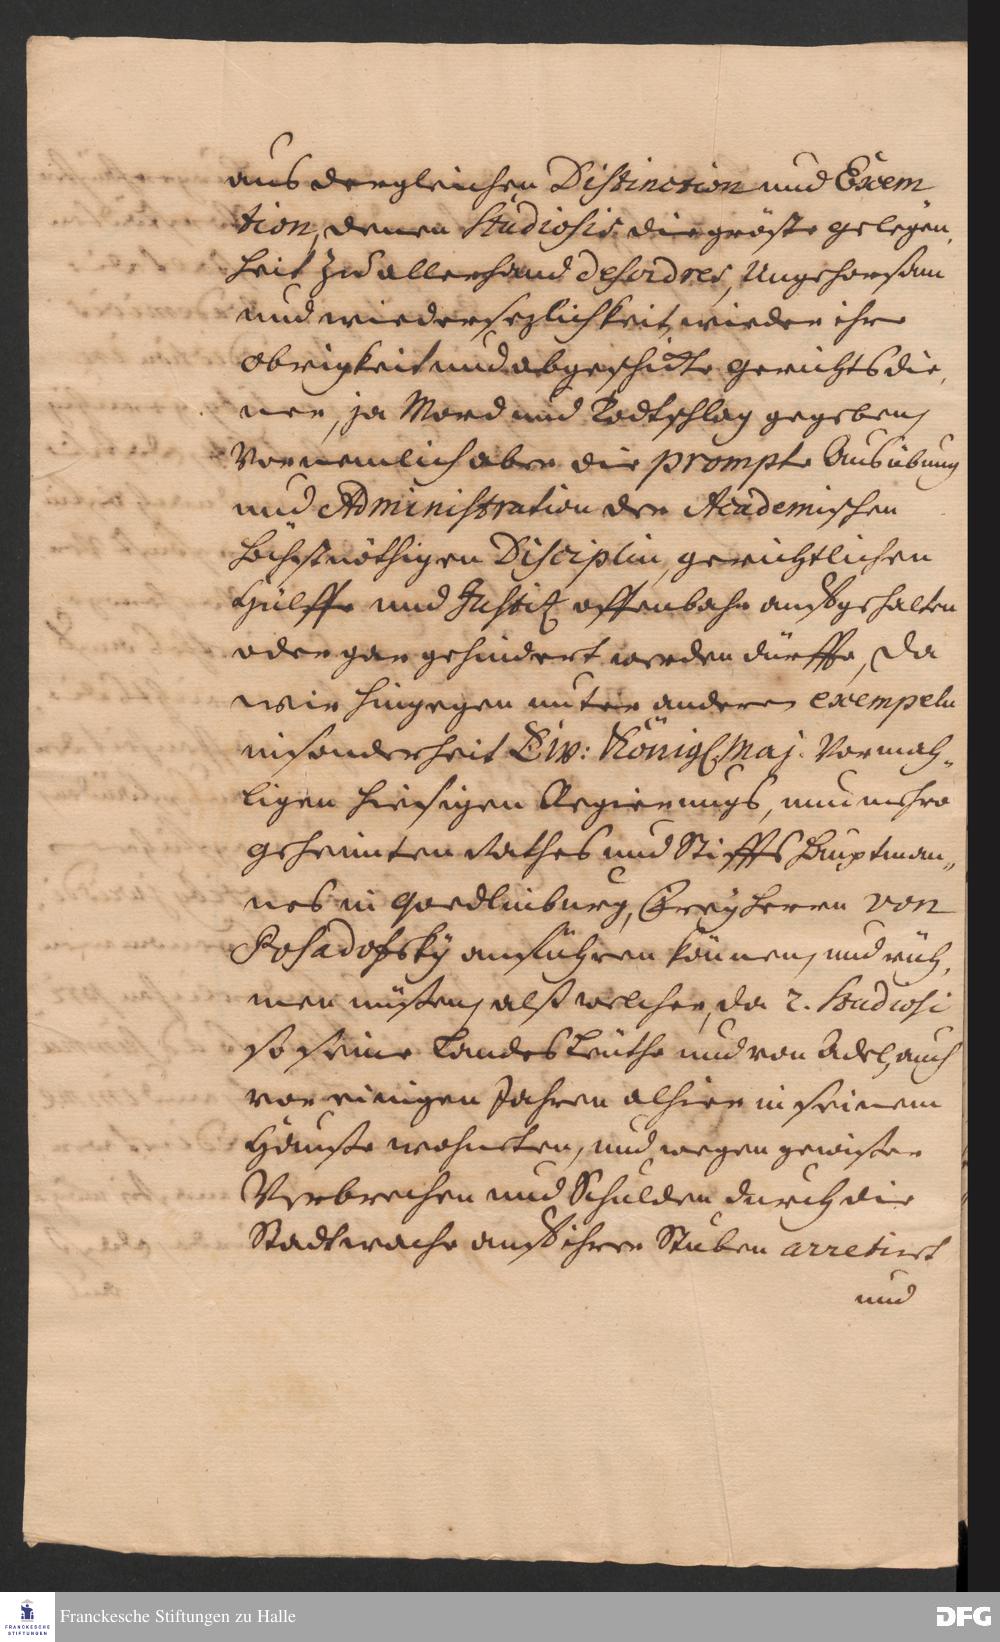 aus dergleichen Distinction und Exem
tion, denen Studiosis die gröste gelegen,
heit zu allerhand desordres, Ungehorsam
und wiedersezlichkeit wieder ihre
Obrigkeit und abgeschickte gerichtsdie,
ner, ja Mord und Todtschlag gegeben,
Vornemlich aber die prompte Ausübung
und Administration der Academischen
höchstnöthigen Disciplin, gerichtlichen
Hülffe und Justiz offenbahr aufgehalten
oder gar gehindert werden dürffte, Da
wir hingegen unter andern exempeln
insonderheit Ew: Königl. Maj. Vormah„
ligen hiesigen Regierungs, nunmehro
geheimten Rathes und Stiffts Hauptman„
nes in Qvedlinburg, Freyherrn von
Posadofsky anführen können, und rüh,
men müßen, alß welcher, da 2. Studiosi
so seine Landesleuthe und von Adel, auch
vor einigen Jahren alhier in seinem
Hause wohneten, und wegen gewißer
Verbrechen und Schulden durch die
Stadtwache auf ihrer Stuben arretirt
und
Franckesche Stiftungen zu Halle
FRANCKESCHE
STIFTUNGEN
DFG